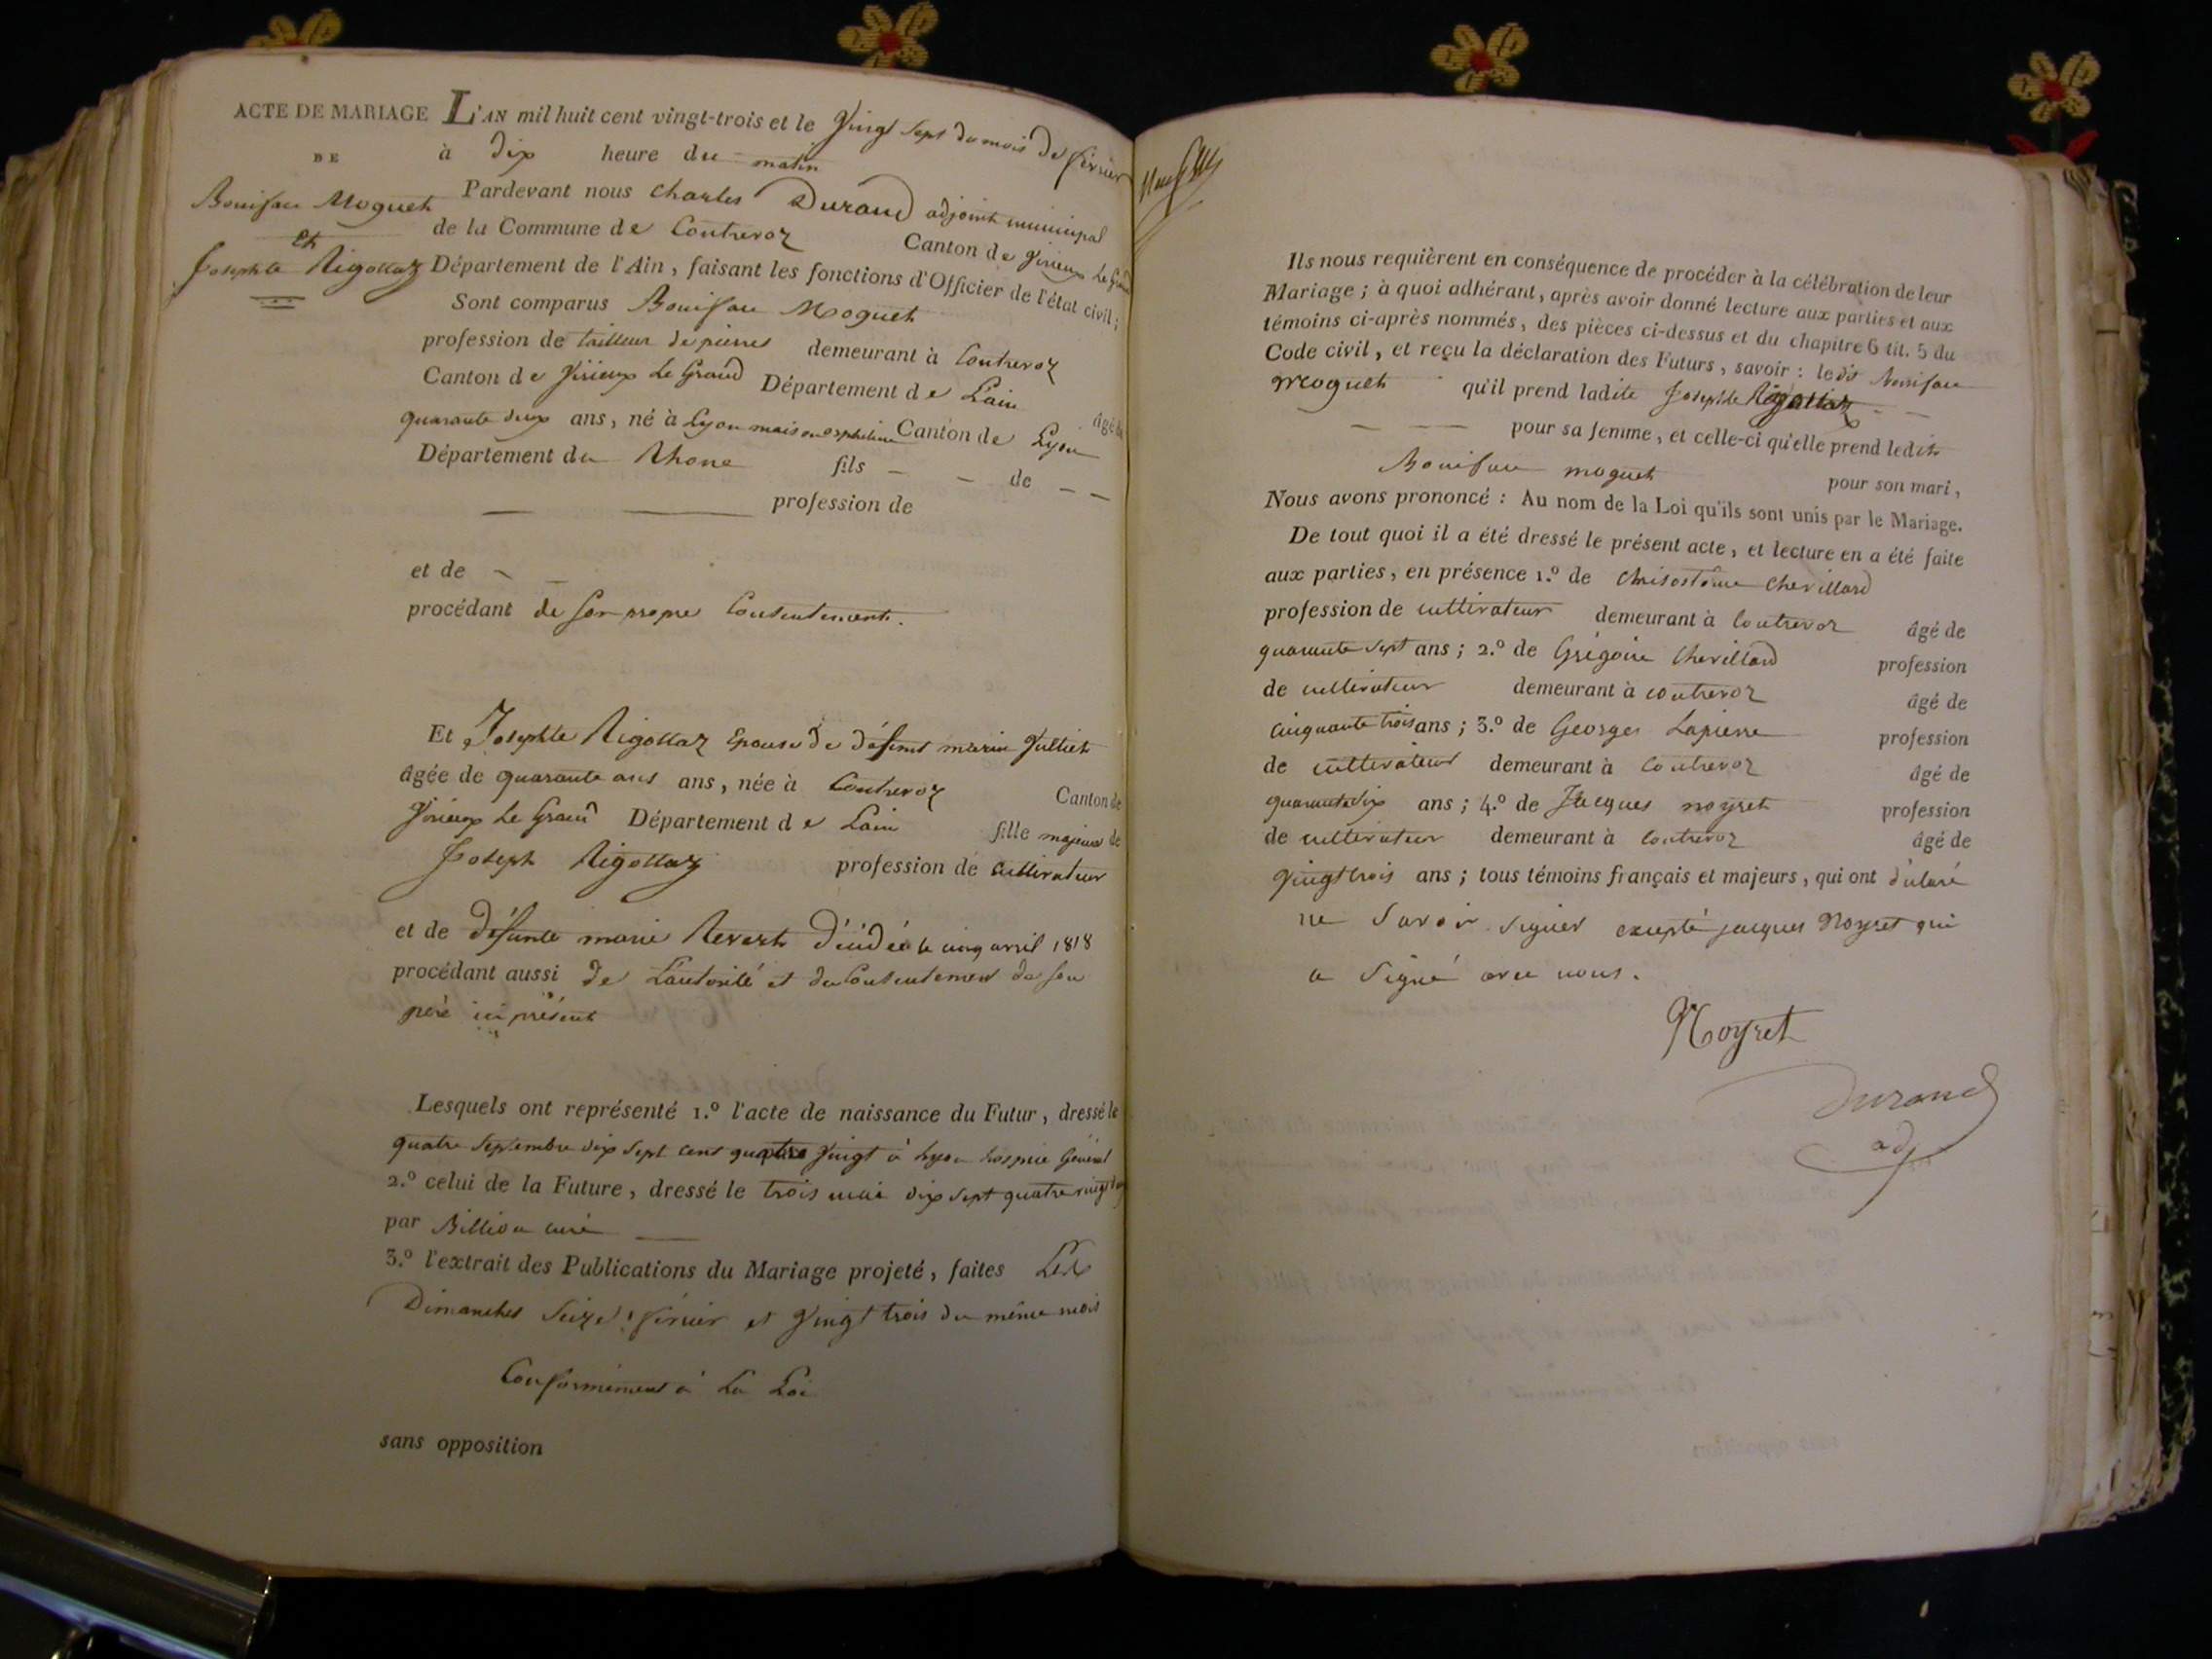 ACTE DE MARIAGE
DE
Boniface Moguet
et
Josephte Rigollaz
L'AN mil huit cent vingt-trois et le Vingt Sept du mois de février
à dix heure du matin
Pardevant nous Charles Durand adjoint municipal
de la Commune de Contrevoz Canton de Virieux Le Grand
Département de l'Ain, faisant les fonctions d'Officier de l'état civil;
Sont comparus Boniface Moguet
profession de tailleur de pierres demeurant à Contrevoz
Canton de Virieux Le Grand Département de L'ain âgé de
quarante deux ans, né à Lyon maison Canton de Lyon
Département du Rhone fils — — de — —
profession de
et de
procédant de son propre Consentement.
Et Josephte Rigollaz Epouse de défunt marin Julliet
âgée de quarante ans ans, née à Contrevoz Canton de
Virieux Le Grand Département de Lain fille majeure de
Joseph Rigollaz profession de cultivateur
et de défunte marie Revert Décédée le cinq avril 1818
procédant aussi de L'autorité et du Consentement de son
père ici présent
Lesquels ont représenté 1.º l'acte de naissance du Futur, dressé le
quatre Septembre dix Sept cent quatre Vingt à Lyon hospice Général
2.º celui de la Future, dressé le trois mai dix sept quatre vingt
par Billion curé
3.º l'extrait des Publications du Mariage projeté, faites Les
Dimanches Seize février et Vingt trois du même mois
Conformément à La Loi
sans opposition
Ils nous requièrent en conséquence de procéder à la célébration de leur
Mariage; à quoi adhérant, après avoir donné lecture aux parties et aux
témoins ci-après nommés, des pièces ci-dessus et du chapitre 6 tit. 5 du
Code civil, et reçu la déclaration des Futurs, savoir: ledit Boniface
Moguet qu'il prend ladite Josephte Rigollaz
pour sa femme, et celle-ci qu'elle prend ledit
Boniface moguet pour son mari,
Nous avons prononcé: Au nom de la Loi qu'ils sont unis par le Mariage.
De tout quoi il a été dressé le présent acte, et lecture en a été faite
aux parties, en présence 1.º de Chrisostôme Chevillard
profession de cultivateur demeurant à Contrevoz âgé de
quarante sept ans; 2.º de Grégoire Chevillard profession
de cultivateur demeurant à contrevoz âgé de
cinquante trois ans; 3.º de Georges Lapierre profession
de cultivateur demeurant à Contrevoz âgé de
quarante dix ans; 4.º de Jacques noyret profession
de cultivateur demeurant à Contrevoz âgé de
Vingt trois ans; tous témoins français et majeurs, qui ont déclaré
ne Savoir Signer excepté jacques Noyret qui
a Signé avec nous.
Noyret
Durand
adj